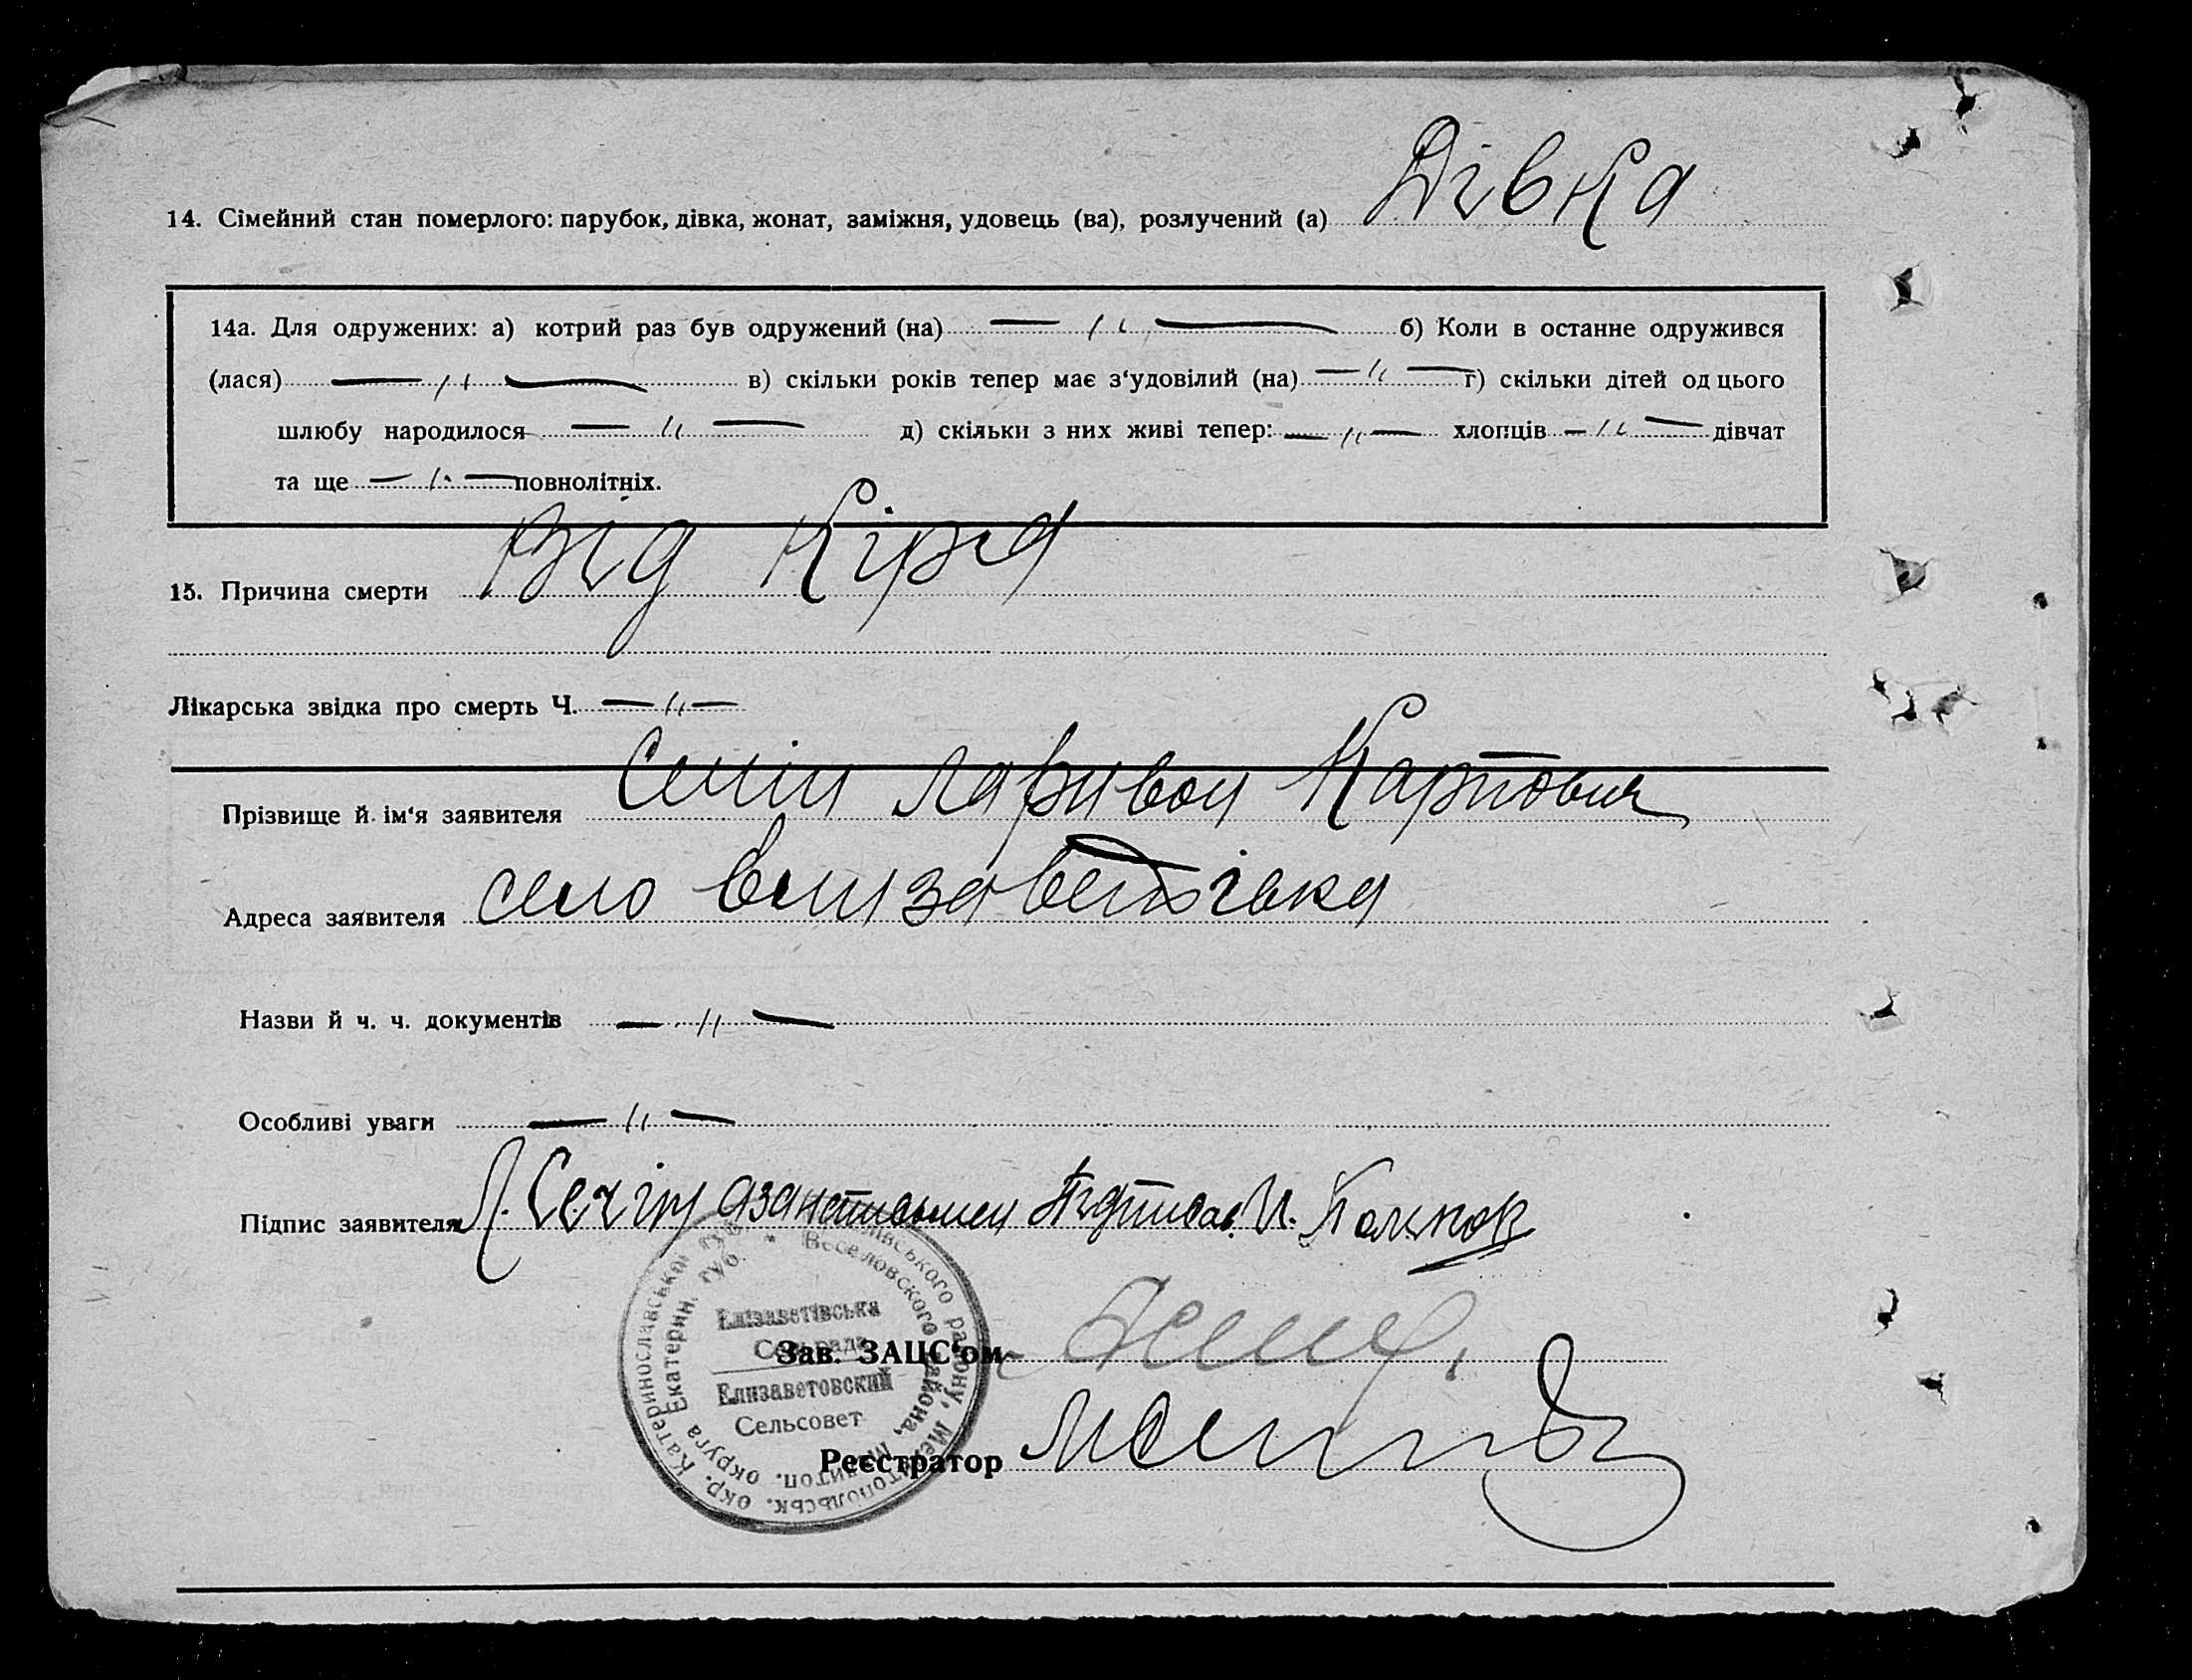 14. Сімейний стан померлого: парубок, дівка, жонат, заміжня, удовець (ва), розлучений (а) Дівка
14а. Для одружених: а) котрий раз був одружений (на) — „ — б) Коли в останне одружився
(лася) — „ — в) скільки років тепер має з‘удовілий (на) — „ — г) скільки дітей од цього
шлюбу народилося — „ — д) скільки з них живі тепер: — „ — хлопців — „ — дівчат
та ще — „ — повнолітніх.
15. Причина смерти Від Кіра
Лікарська звідка про смерть Ч. — „ —
Прізвище й ім‘я заявителя Ларивон Карпович
Адреса заявителя село Елизаветівка
Назви й ч. ч. документів — „ —
Особливі уваги — „ —
Підпис заявителя Л. Підписав И.
Катеринославської губ. Веселівського району, Мелітопольськ. окр.
Екатерин. губ. * Веселовского района, Мелитоп. округа
Елізаветівська
Сельрада
Елизаветовский
Сельсовет
Зав. ЗАЦС‘ом
Реєстратор